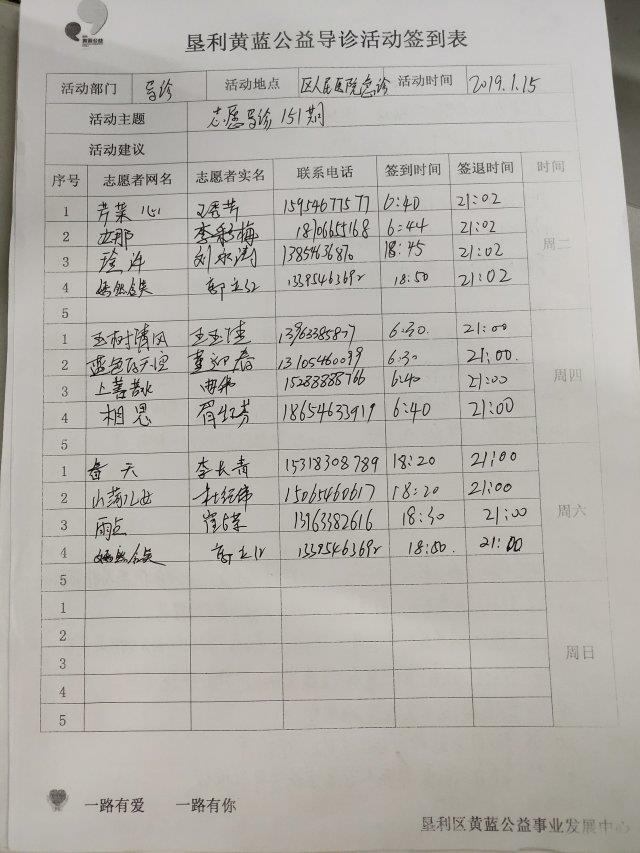 黄蓝公益
垦利黄蓝公益导诊活动签到表
活动部门 导诊 活动地点 区人民医院急诊 活动时间 2019.1.15
活动主题 志愿导诊151期
活动建议
序号 志愿者网名 志愿者实名 联系电话 签到时间 签退时间 时间
1 芹菜 15954677577 6:40 21:02
2 李彩梅 18706655168 6:44 21:02
3 刘永涛 1385463687 18:45 21:02
4 嫣然含笑 郭立红 13395463692 18:50 21:02
5
周二
1 玉树清风 王玉佳 6:30 21:00
2 蓝色的天空 13105460099 6:30 21:00
3 上善若水 15288888766 6:40 21:00
4 相思 18654633919 6:40 21:00
5
周四
1 春天 李长青 15318308789 18:20 21:00
2 杜经伟 15065460617 18:20 21:00
3 雨点 13163382616 18:30 21:00
4 嫣然含笑 郭立红 13395463692 18:50. 21:00
5
周六
1
2
3
4
5
周日
一路有爱 一路有你
垦利区黄蓝公益事业发展中心